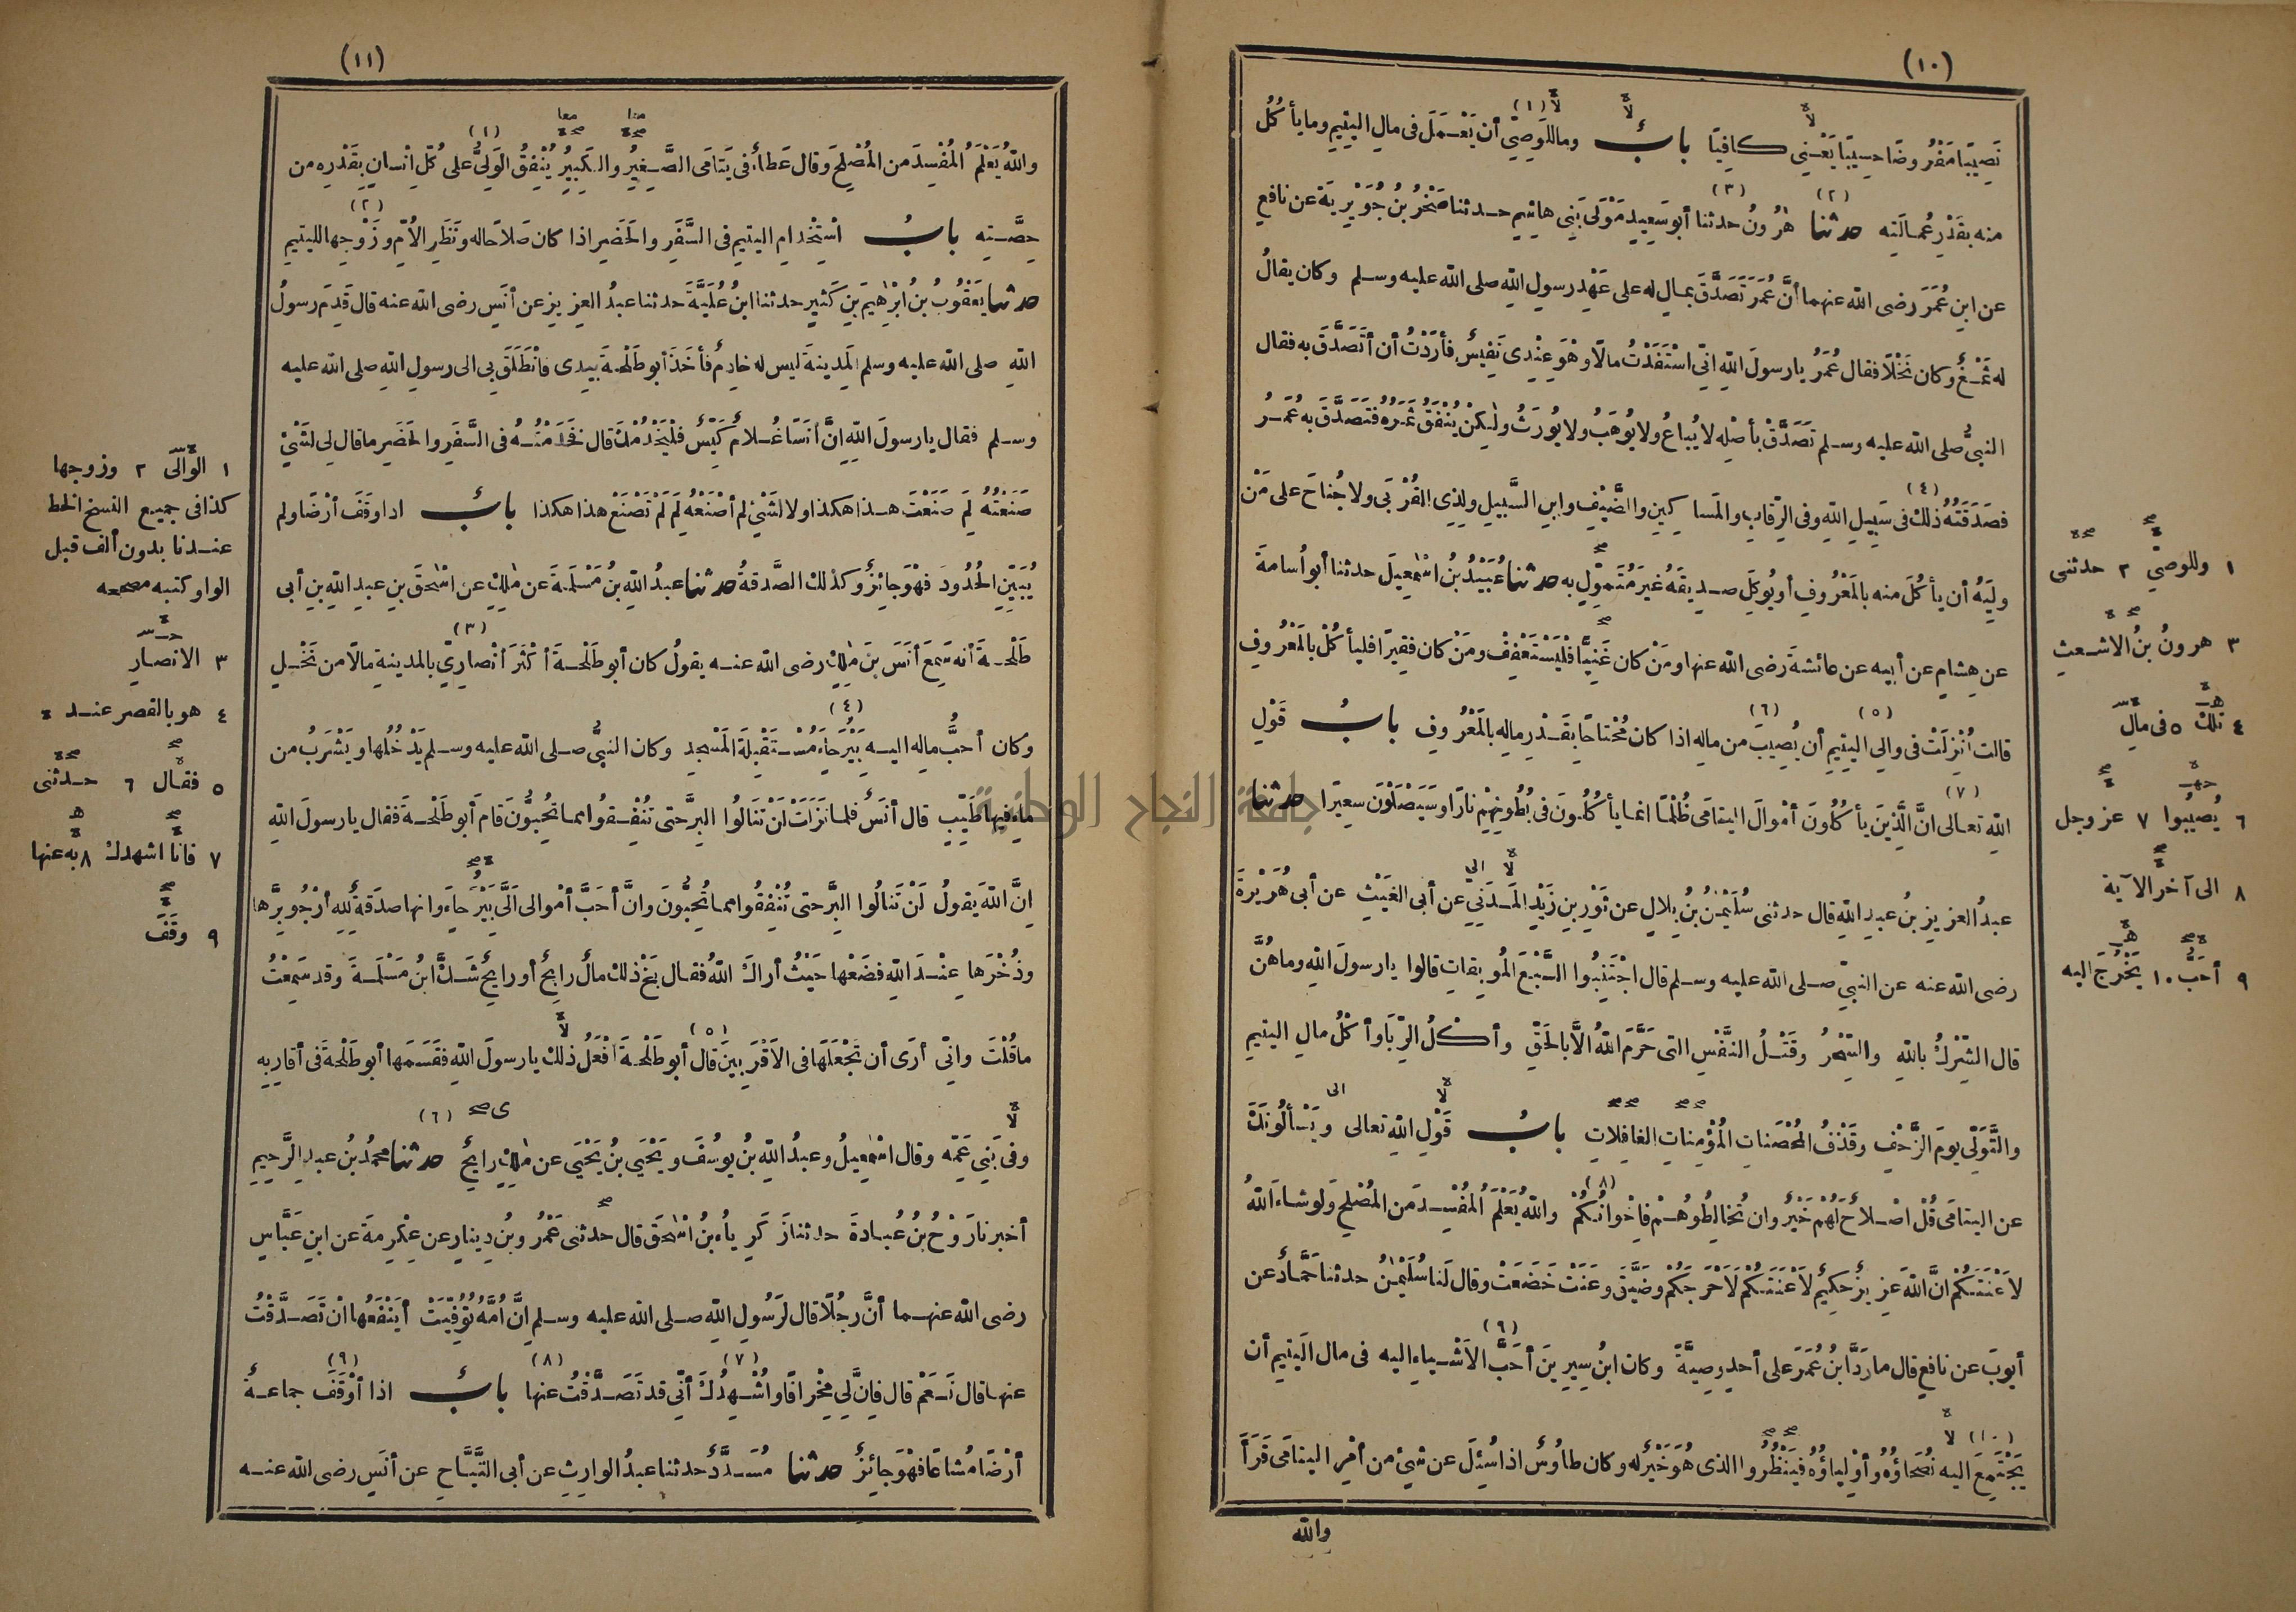 (١٠)
نَصِيبًا مَفْرُوضًا حسِيبًا يَعْنِى كافِيًا بابٌ وما للوَصِىِّ (١) أن يَعْمَلَ فى مالِ اليتيمِ وما يأكُلُ
منه بقَدْرِ عُمالَتِه حدثنا (٢) هٰرُونُ (٣) حدثنا أبو سَعِيدٍ مَوْلَى بَنِى هاشِمٍ حدثنا صَخْرُ بنُ جُوَيْرِيَةَ عن نافعٍ
عن ابنِ عُمَرَ رضى الله عنهما أنَّ عُمَرَ تَصَدَّقَ بمالٍ له على عَهْدِ رسولِ اللهِ صلى الله عليه وسلم وكان يقالُ
له ثَمْغٌ وكان نَخْلًا فقال عُمَرُ يا رسولَ اللهِ انِّى اسْتَفَدْتُ مالًا وهْوَ عِنْدِى نَفِيسٌ فأرَدْتُ أن أتَصَدَّقَ به فقال
النبىُّ صلى الله عليه وسلم تَصَدَّقْ بأصْلِه لا يُباعُ ولا يُوهَبُ ولا يُورَثُ ولٰكِنْ يُنْفَقُ ثَمَرُه فتَصَدَّقَ به عُمَرُ
فصَدَقَتُهُ ذٰلك (٤) فى سَبِيلِ اللهِ وفى الرِّقابِ والمَساكِينِ والضَّيْفِ وابنِ السَّبِيلِ ولِذِى القُرْبَى ولا جُناحَ على مَنْ
ولِيَهُ أن يأكُلَ منه بالمَعْرُوفِ أو يُوكِلَ صدِيقَهُ غيرَ مُتَمَوِّلٍ به حدثنا عُبَيْدُ بنُ اسْمٰعِيلَ حدثنا أبو أُسامةَ
عن هِشامٍ عن أبيه عن عائشةَ رضى الله عنها ومَنْ كان غَنِيًّا فلْيَسْتَعْفِفْ ومَنْ كان فقيرًا فليأكُلْ بالمَعْرُوفِ
قالت أُنْزِلَتْ فى والِى اليتيمِ (٥) أن يُصِيبَ (٦) من مالِه اذا كان مُحْتاجًا بقَدْرِ مالِه بالمَعْرُوفِ بابُ قَوْلِ
اللهِ تعالى (٧) انَّ الَّذِينَ يأكُلُونَ أمْوالَ اليتامَى ظُلْمًا انما يأكُلُونَ فى بُطُونِهِمْ نارًا وسَيَصْلَوْنَ سعِيرًا حدثنا
عبدُ العزيزِ بنُ عبدِ اللهِ قال حدثنى سُلَيْمٰنُ بنُ بِلالٍ عن ثَوْرِ بنِ زَيْدٍ المَدَنِىِّ عن أبى الغَيْثِ عن أبى هُرَيْرةَ
رضى الله عنه عن النبىِّ صلى الله عليه وسلم قال اجْتَنِبُوا السَّبْعَ المُوبِقاتِ قالوا يا رسولَ اللهِ وما هُنَّ
قال الشِّرْكُ باللهِ والسِّحْرُ وقَتْلُ النَّفْسِ التى حَرَّمَ اللهُ الَّا بالحَقِّ وأكْلُ الرِّبَا وأكْلُ مالِ اليتيمِ
والتَّوَلِّى يومَ الزَّحْفِ وقَذْفُ المُحْصَناتِ المُؤْمِناتِ الغافِلاتِ بابُ قَوْلِ اللهِ تعالى ويَسْألُونَكَ
عن اليتامَى قُلْ اصْلاحٌ لَهُمْ خَيْرٌ وان تُخالِطُوهُمْ فاخْوانُكُمْ (٨) واللهُ يَعْلَمُ المُفْسِدَ من المُصْلِحِ ولو شاءَ اللهُ
لأَعْنَتَكُمْ انَّ اللهَ عزيزٌ حكِيمٌ لَأَعْنَتَكُمْ لَأَحْرَجَكُمْ وضَيَّقَ وعَنَتْ خَضَعَتْ وقال لَنا سُلَيْمٰنُ حدثنا حَمَّادٌ عن
أيوبَ عن نافعٍ قال ما رَدَّ ابنُ عُمَرَ على أحدٍ وصِيَّةً وكان ابنُ سِيرِينَ أحَبَّ (٩) الأَشْياءِ اليه فى مال اليَتِيمِ أن
يَجْتَمِعَ (١٠) اليه نُصَحاؤُه وأوْلِياؤُهُ فيَنْظُرُوا الذى هُوَ خَيْرٌ له وكان طاوُسٌ اذا سُئِلَ عن شىءٍ من أمْرِ اليتامَى قَرَأَ
والله
١ وللوصىِّ ٢ حدثنى
٣ هرونُ بنُ الاشعثِ
٤ تلك ٥ فى مالِ
٦ يُصِيبُوا ٧ عز وجل
٨ الى آخر الآية
٩ أحَبُّ ١٠ يَخْرُجَ اليه
(١١)
واللهُ يَعْلَمُ المُفْسِدَ من المُصْلِحِ وقال عَطاءٌ فى يَتامَى الصَّغِيرُ والكَبِيرُ يُنْفِقُ الوَلِىُّ (١) على كُلِّ انْسانٍ بقَدْرِه من
حِصَّتِه بابُ اسْتِخْدامِ اليتيمِ فى السَّفَرِ والحَضَرِ اذا كان صَلاحًا له ونَظَرِ الأُمِّ وزَوْجِها (٢) لليتيمِ
حدثنا يَعْقُوبُ بنُ ابْرٰهِيمَ بنِ كَثِيرٍ حدثنا ابنُ عُلَيَّةَ حدثنا عبدُ العزيزِ عن أنَسٍ رضى الله عنه قال قَدِمَ رسولُ
اللهِ صلى الله عليه وسلم المَدِينةَ ليس له خادِمٌ فأخَذَ أبو طَلْحةَ بيدِى فانْطَلَقَ بى الى رسولِ اللهِ صلى الله عليه
وسلم فقال يا رسولَ اللهِ انَّ أنَسًا غُلامٌ كَيِّسٌ فلْيَخْدُمْكَ قال فخَدَمْتُهُ فى السَّفَرِ والحَضَرِ ما قال لِى لشَىْءٍ
صَنَعْتُهُ لِمَ صَنَعْتَ هذا هكذا ولا لشَىْءٍ لم أصْنَعْهُ لِمَ لَمْ تَصْنَعْ هذا هكذا بابٌ اذا وقَفَ أرْضًا ولم
يُبَيِّنِ الحُدُودَ فهْوَ جائِزٌ وكذٰلك الصَّدقةُ حدثنا عبدُ اللهِ بنُ مَسْلَمةَ عن مٰلكٍ عن اسْحٰقَ بنِ عبدِ اللهِ بنِ أبى
طَلْحةَ أنه سَمِعَ أنَسَ بنَ مٰلكٍ رضى الله عنه يقولُ كان أبو طَلْحةَ أكْثَرَ أنْصارِىٍّ (٣) بالمدينةِ مالًا من نَخْلٍ
وكان أحبُّ مالِه اليه بَيْرُحاءَ (٤) مُسْتَقْبِلةَ المَسْجِدِ وكان النبىُّ صلى الله عليه وسلم يَدْخُلُها ويَشْرَبُ من
ماءٍ فيها طَيِّبٍ قال أنَسٌ فلما نَزَلَتْ لَنْ تَنالُوا البِرَّ حتى تُنْفِقُوا مما تُحِبُّونَ قامَ أبو طَلْحةَ فقال يا رسولَ اللهِ
انَّ اللهَ يقولُ لَنْ تَنالُوا البِرَّ حتى تُنْفِقُوا مما تُحِبُّونَ وانَّ أحَبَّ أمْوالى الَىَّ بَيْرُحاءَ وانها صدَقةٌ للهِ أرْجُو بِرَّها
وذُخْرَها عِنْدَ اللهِ فضَعْها حَيْثُ أراكَ اللهُ فقال بَخْ ذٰلك مالٌ رابِحٌ أو رايِحٌ شَكَّ ابنُ مَسْلَمةَ وقد سَمِعْتُ
ما قُلْتَ وانِّى أرَى أن تَجْعَلَها فى الأَقْرَبِينَ قال (٥) أبو طَلْحةَ أفْعَلُ ذٰلك يا رسولَ اللهِ فقَسَمَها أبو طَلْحةَ فى أقارِبِه
وفى بَنِى عَمِّه وقال اسْمٰعِيلُ وعبدُ اللهِ بنُ يوسُفَ ويَحْيَى بنُ يَحْيَى عن مٰلكٍ رايِحٌ حدثنا (٦) محمدُ بنُ عبدِ الرَّحِيمِ
أخبرنا رَوْحُ بنُ عُبادةَ حدثنا زَكَرِيَّاءُ بنُ اسْحٰقَ قال حدثنى عَمْرُو بنُ دِينارٍ عن عِكْرِمةَ عن ابنِ عَبَّاسٍ
رضى الله عنهما أنَّ رجُلًا قال لرَسُولِ اللهِ صلى الله عليه وسلم انَّ أُمَّهُ تُوُفِّيَتْ أيَنْفَعُها انْ تَصَدَّقْتُ
عنها قال نَعَمْ قال فانَّ لِى مِخْرافًا وأُشْهِدُكَ (٧) أنِّى قد تَصَدَّقْتُ عنها (٨) بابٌ اذا أوْقَفَ (٩) جماعةٌ
أرْضًا مُشاعًا فهْوَ جائِزٌ حدثنا مُسَدَّدٌ حدثنا عبدُ الوارِثِ عن أبى التَّيَّاحِ عن أنَسٍ رضى الله عنه
١ الوالى ٢ وزوجها
كذا فى جميع النسخ الخط
عندنا بدون ألف قبل
الواو كتبه مصححه
٣ الانصارِ
٤ هو بالقصر عند
٥ فقال ٦ حدثنى
٧ فانا اشهدك ٨ به عنها
٩ وقَفَ
جامعة النجاح الوطنية